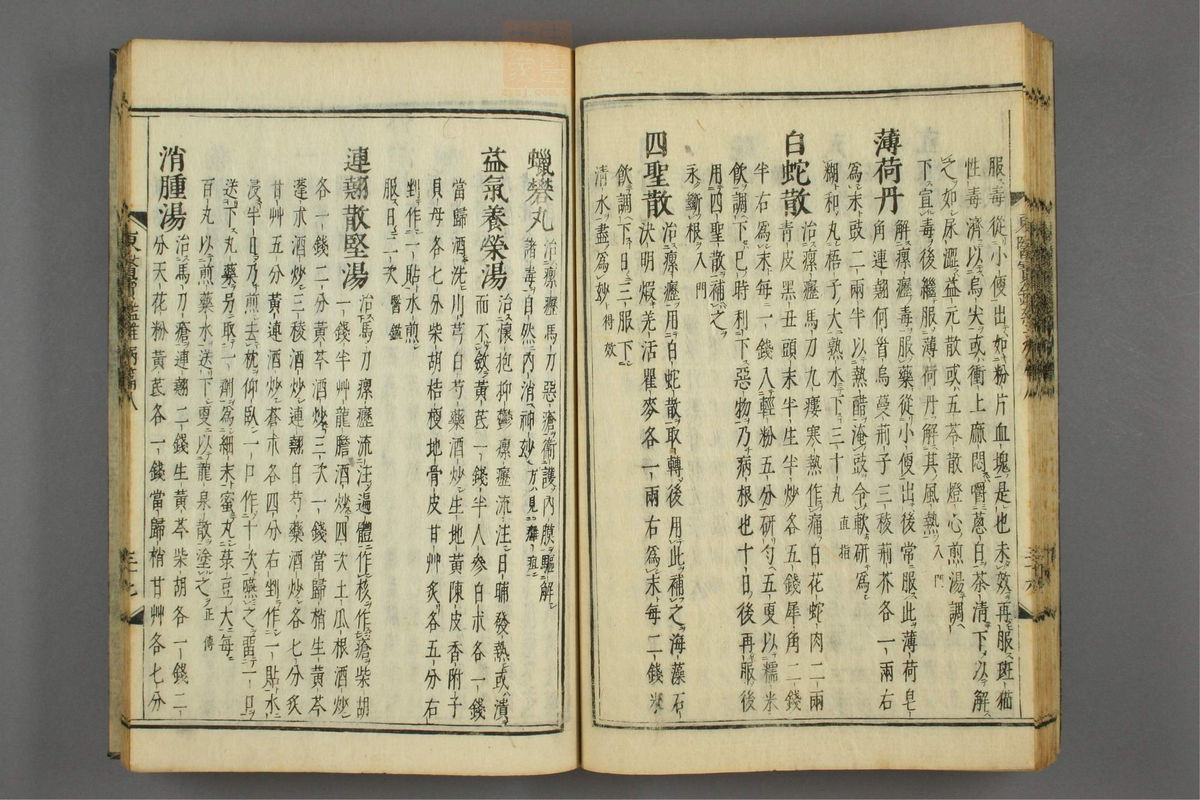 服毒從小便出如粉片血塊是也未效再服斑猫
性毒濟以烏尖或衝上麻悶嚼葱白茶清下以解
之如尿澁益元散或五苓散燈心煎湯調
下宣毒後繼服薄荷丹解其風熱入門
薄荷丹 解瘰癧毒服藥從小便出後常服此薄荷皂
角連翹何首烏蔓荊子三稜荊芥各一兩右
爲末豉二兩半以熱醋淹豉令軟研爲
糊和丸梧子大熟水下三十丸直指
白蛇散 治瘰癧馬刀九瘻寒熱作痛白花蛇肉二兩
青皮黑丑頭末半生半炒各五錢犀角二錢
半右爲末每一錢入輕粉五分研勻五更以糯米
飮調下巳時利下惡物乃病根也十日後再服後
用四聖散補之
永斷根入門
四聖散 治瘰癧用白蛇散取轉後用此補之海藻石
決明煆羌活瞿麥各一兩右爲末每二錢米
飮調下日三服下
淸水盡爲妙得效
蠟礬丸 治瘰癧馬刀惡瘡衞護內膜驅解
諸毒自然內消神妙方見癰疽
益氣養榮湯 治懷抱抑鬱瘰癧流注日晡發熱或潰
而不斂黃芪一錢半人參白朮各一錢
當歸酒洗川芎白芍藥酒炒生地黃陳皮香附子
貝母各七分柴胡桔梗地骨皮甘艸炙各五分右
剉作一貼水煎
服日二次醫鑑
連翹散堅湯 治馬刀瘰癧流注遍體作核作瘡柴胡
一錢半艸龍膽酒炒四次土瓜根酒炒
各一錢二分黃芩酒炒三次一錢當歸梢生黃芩
蓬朮酒炒三稜酒炒連翹白芍藥酒炒各七分炙
甘艸五分黃連酒炒蒼朮各四分右剉作一貼水
浸半日乃煎去枕仰臥一口作十次嚥之留一口
送下丸藥另取一劑爲細末蜜丸菉豆大每
百丸以煎藥水送下更以龍泉散塗之正傳
消腫湯 治馬刀瘡連翹二錢生黃芩柴胡各一錢二
分天花粉黃芪各一錢當歸梢甘艸各七分
東醫寶鑑雜病篇八